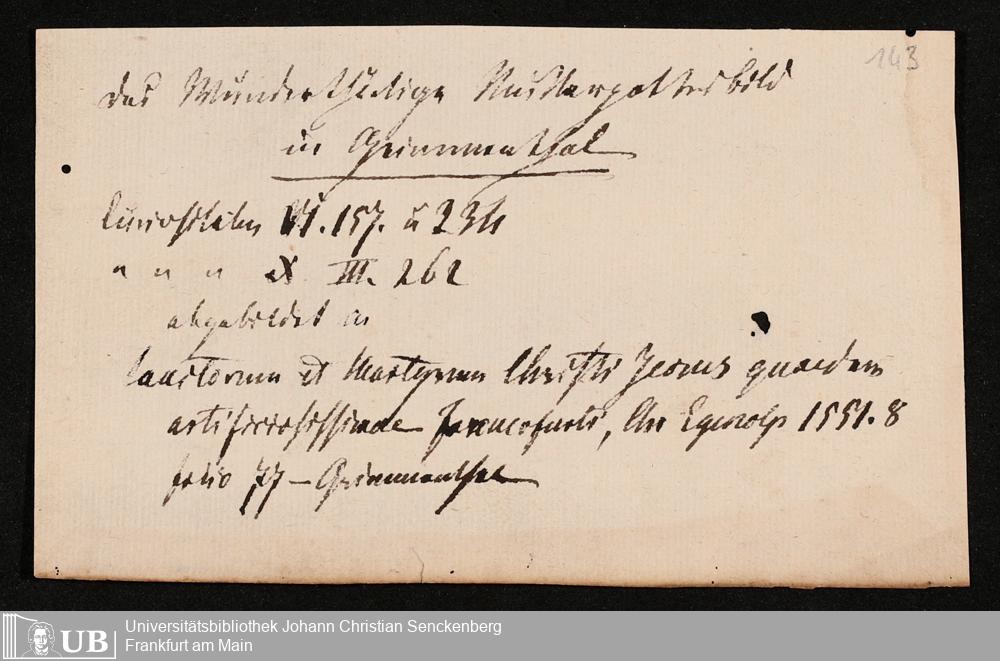 143
das Wunderthätige Muttergottesbild
in Grimmenthal
Curiositaten VI. 157. u 234
" " " X III. 262
abgebildet in
Sanctorum et Martyrum Christi Icones quaedam
artificiosissimae Francofurti, Chr Egenolp 1551. 8
folio 77 – Grimmenthal
UB
Universitätsbibliothek Johann Christian Senckenberg
Frankfurt am Main